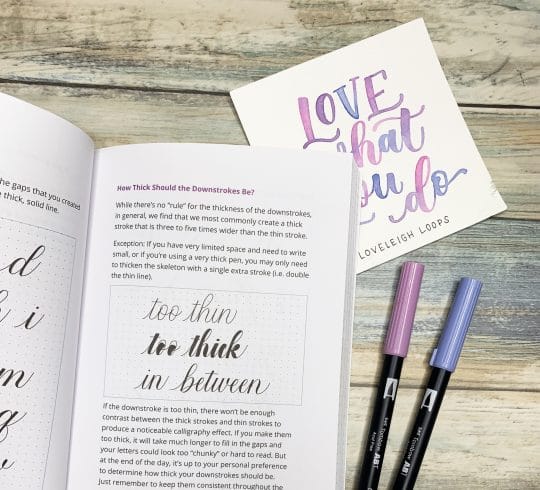 he gaps that you created
thick, solid line.
d
h i
m
How Thick Should the Downstrokes Be?
While there's no "rule" for the thickness of the downstrokes,
in general, we find that we most commonly create a thick
stroke that is three to five times wider than the thin stroke.
Exception: If you have very limited space and need to write
small, or if you're using a very thick pen, you may only need
to thicken the skeleton with a single extra stroke (i.e. double
the thin line).
too thin
too thick
in between
If the downstroke is too thin, there won't be enough
contrast between the thick strokes and thin strokes to
produce a noticeable calligraphy effect. If you make them
too thick, it will take much longer to fill in the gaps and
your letters could look too "chunky" or hard to read. But
at the end of the day, it's up to your personal preference
to determine how thick your downstrokes should be.
Just remember to keep them consistent throughout the
LOVE
what
you do
LOVELEIGH LOOPS
Tombow AB
Tombow AB